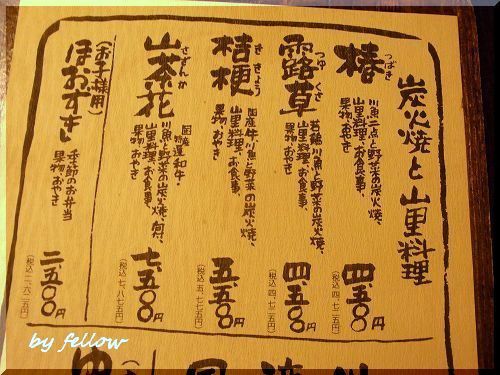 炭火焼と山里料理
椿
つばき
川魚二点と野菜の炭火焼、
山里料理、お食事、
果物、おやき
四、五〇〇円
(税込 四、七二五円)
露草
つゆくさ
若鶏、川魚と野菜の炭火焼、
山里料理、お食事、
果物、おやき
四、五〇〇円
(税込 四、七二五円)
桔梗
ききょう
国産牛、川魚と野菜の炭火焼、
山里料理、お食事、
果物、おやき
五、五〇〇円
(税込 五、七七五円)
山茶花
さざんか
国産特選和牛・
川魚と野菜の炭火焼、
山里料理、お食事、
果物、おやき
七、五〇〇円
(税込 七、八七五円)
(お子様用)
ほおずき
季節のお弁当
果物、おやき
二、五〇〇円
(税込 二、六二五円)
by fellow